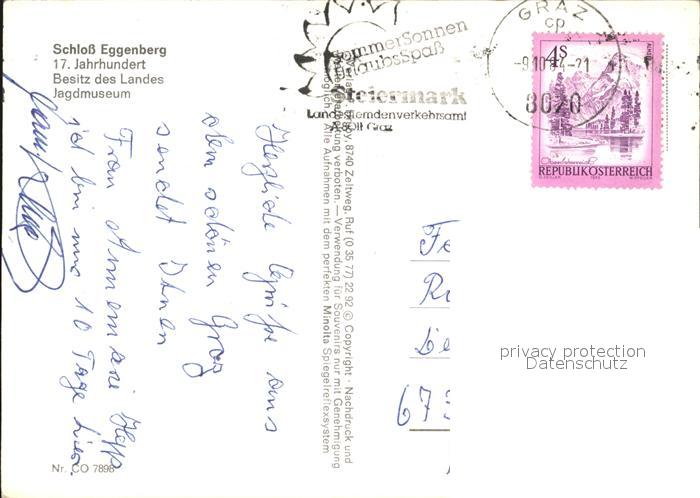 Schloß Eggenberg
17. Jahrhundert
Besitz des Landes
Jagdmuseum
SommerSonnen
UrlaubsSpaß
Steiermark
Landesfremdenverkehrsamt
8011 Graz
GRAZ
cp
-9.10.84-21
8020
4s
REPUBLIK ÖSTERREICH
Herzliche Grüße aus
dem schönen Graz
sendet Ihnen
Frau Annemarie
ich bin nur 10 Tage hier.
8740 Zeltweg, Ruf (0 35 77) 22 92 © Copyright - Nachdruck und
verboten. — Verwendung für Souvenirs nur mit Genehmigung
Alle Aufnahmen mit dem perfekten Minolta Spiegelreflexsystem
Nr. CO 7898
67
privacy protection
Datenschutz